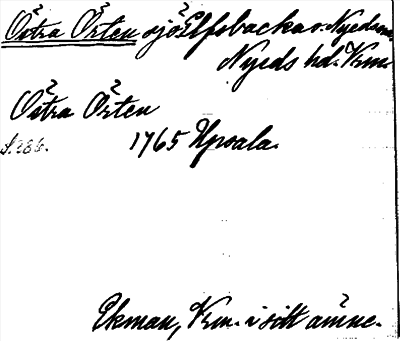 Östra Örten sjö Elfsbacka o. Nyedsn
Nyeds hd. Krm.
Östra Örten
S. 286. 1765 Upsala.
Ekman, Krm. i sitt ämne.